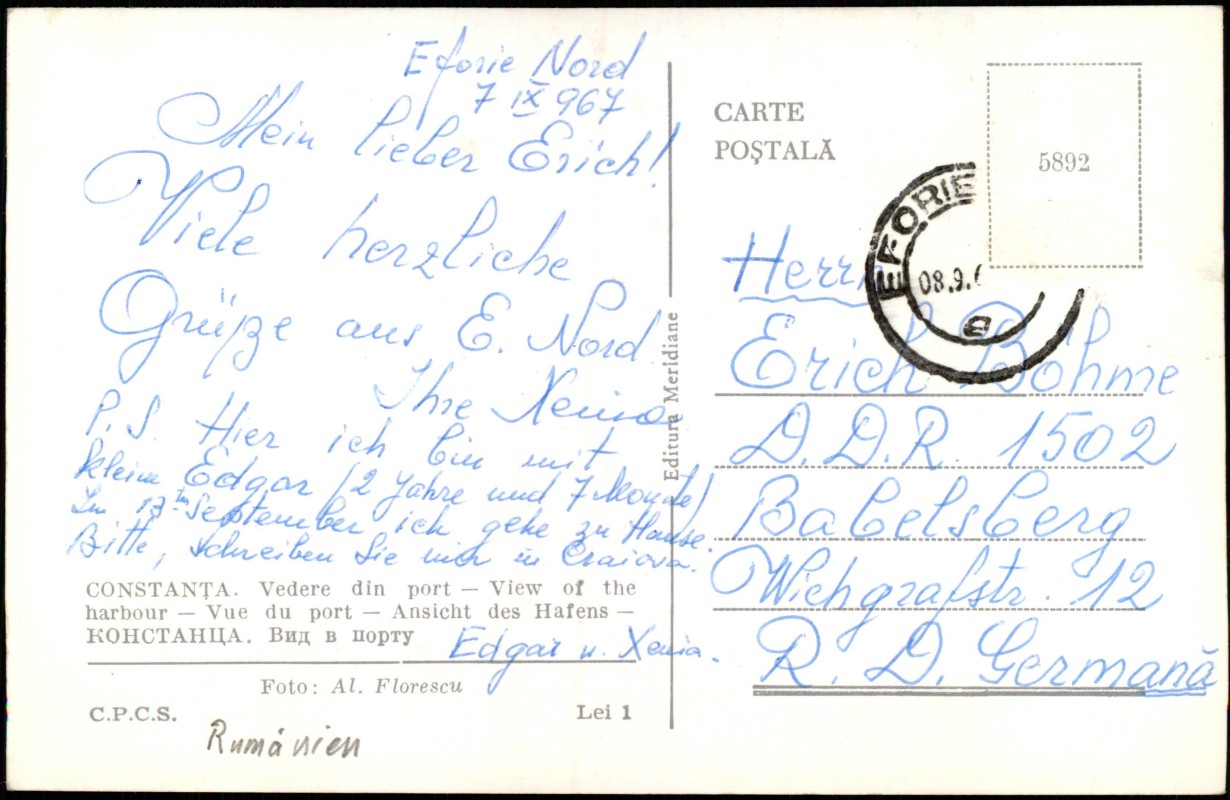 Eforie Nord
7 IX 967
Mein lieber Erich!
Viele herzliche
Grüße aus E. Nord
Ihre Xenia
P.S. Hier ich bin mit
kleine Edgar (2 Jahre und 7 Monate)
Im 13ten September ich gehe zu Hause.
Bitte, schreiben Sie mir in Craiova.
Edgar u. Xenia.
CONSTANȚA. Vedere din port — View of the
harbour — Vue du port — Ansicht des Hafens —
КОНСТАНЦА. Вид в порту
Foto: Al. Florescu
C.P.C.S.
Lei 1
Rumänien
Editura Meridiane
CARTE
POȘTALĂ
5892
EFORIE
08.9.6
Herrn
Erich Böhme
D.D.R. 1502
Babelsberg
Wichgrafstr. 12
R. D. Germană